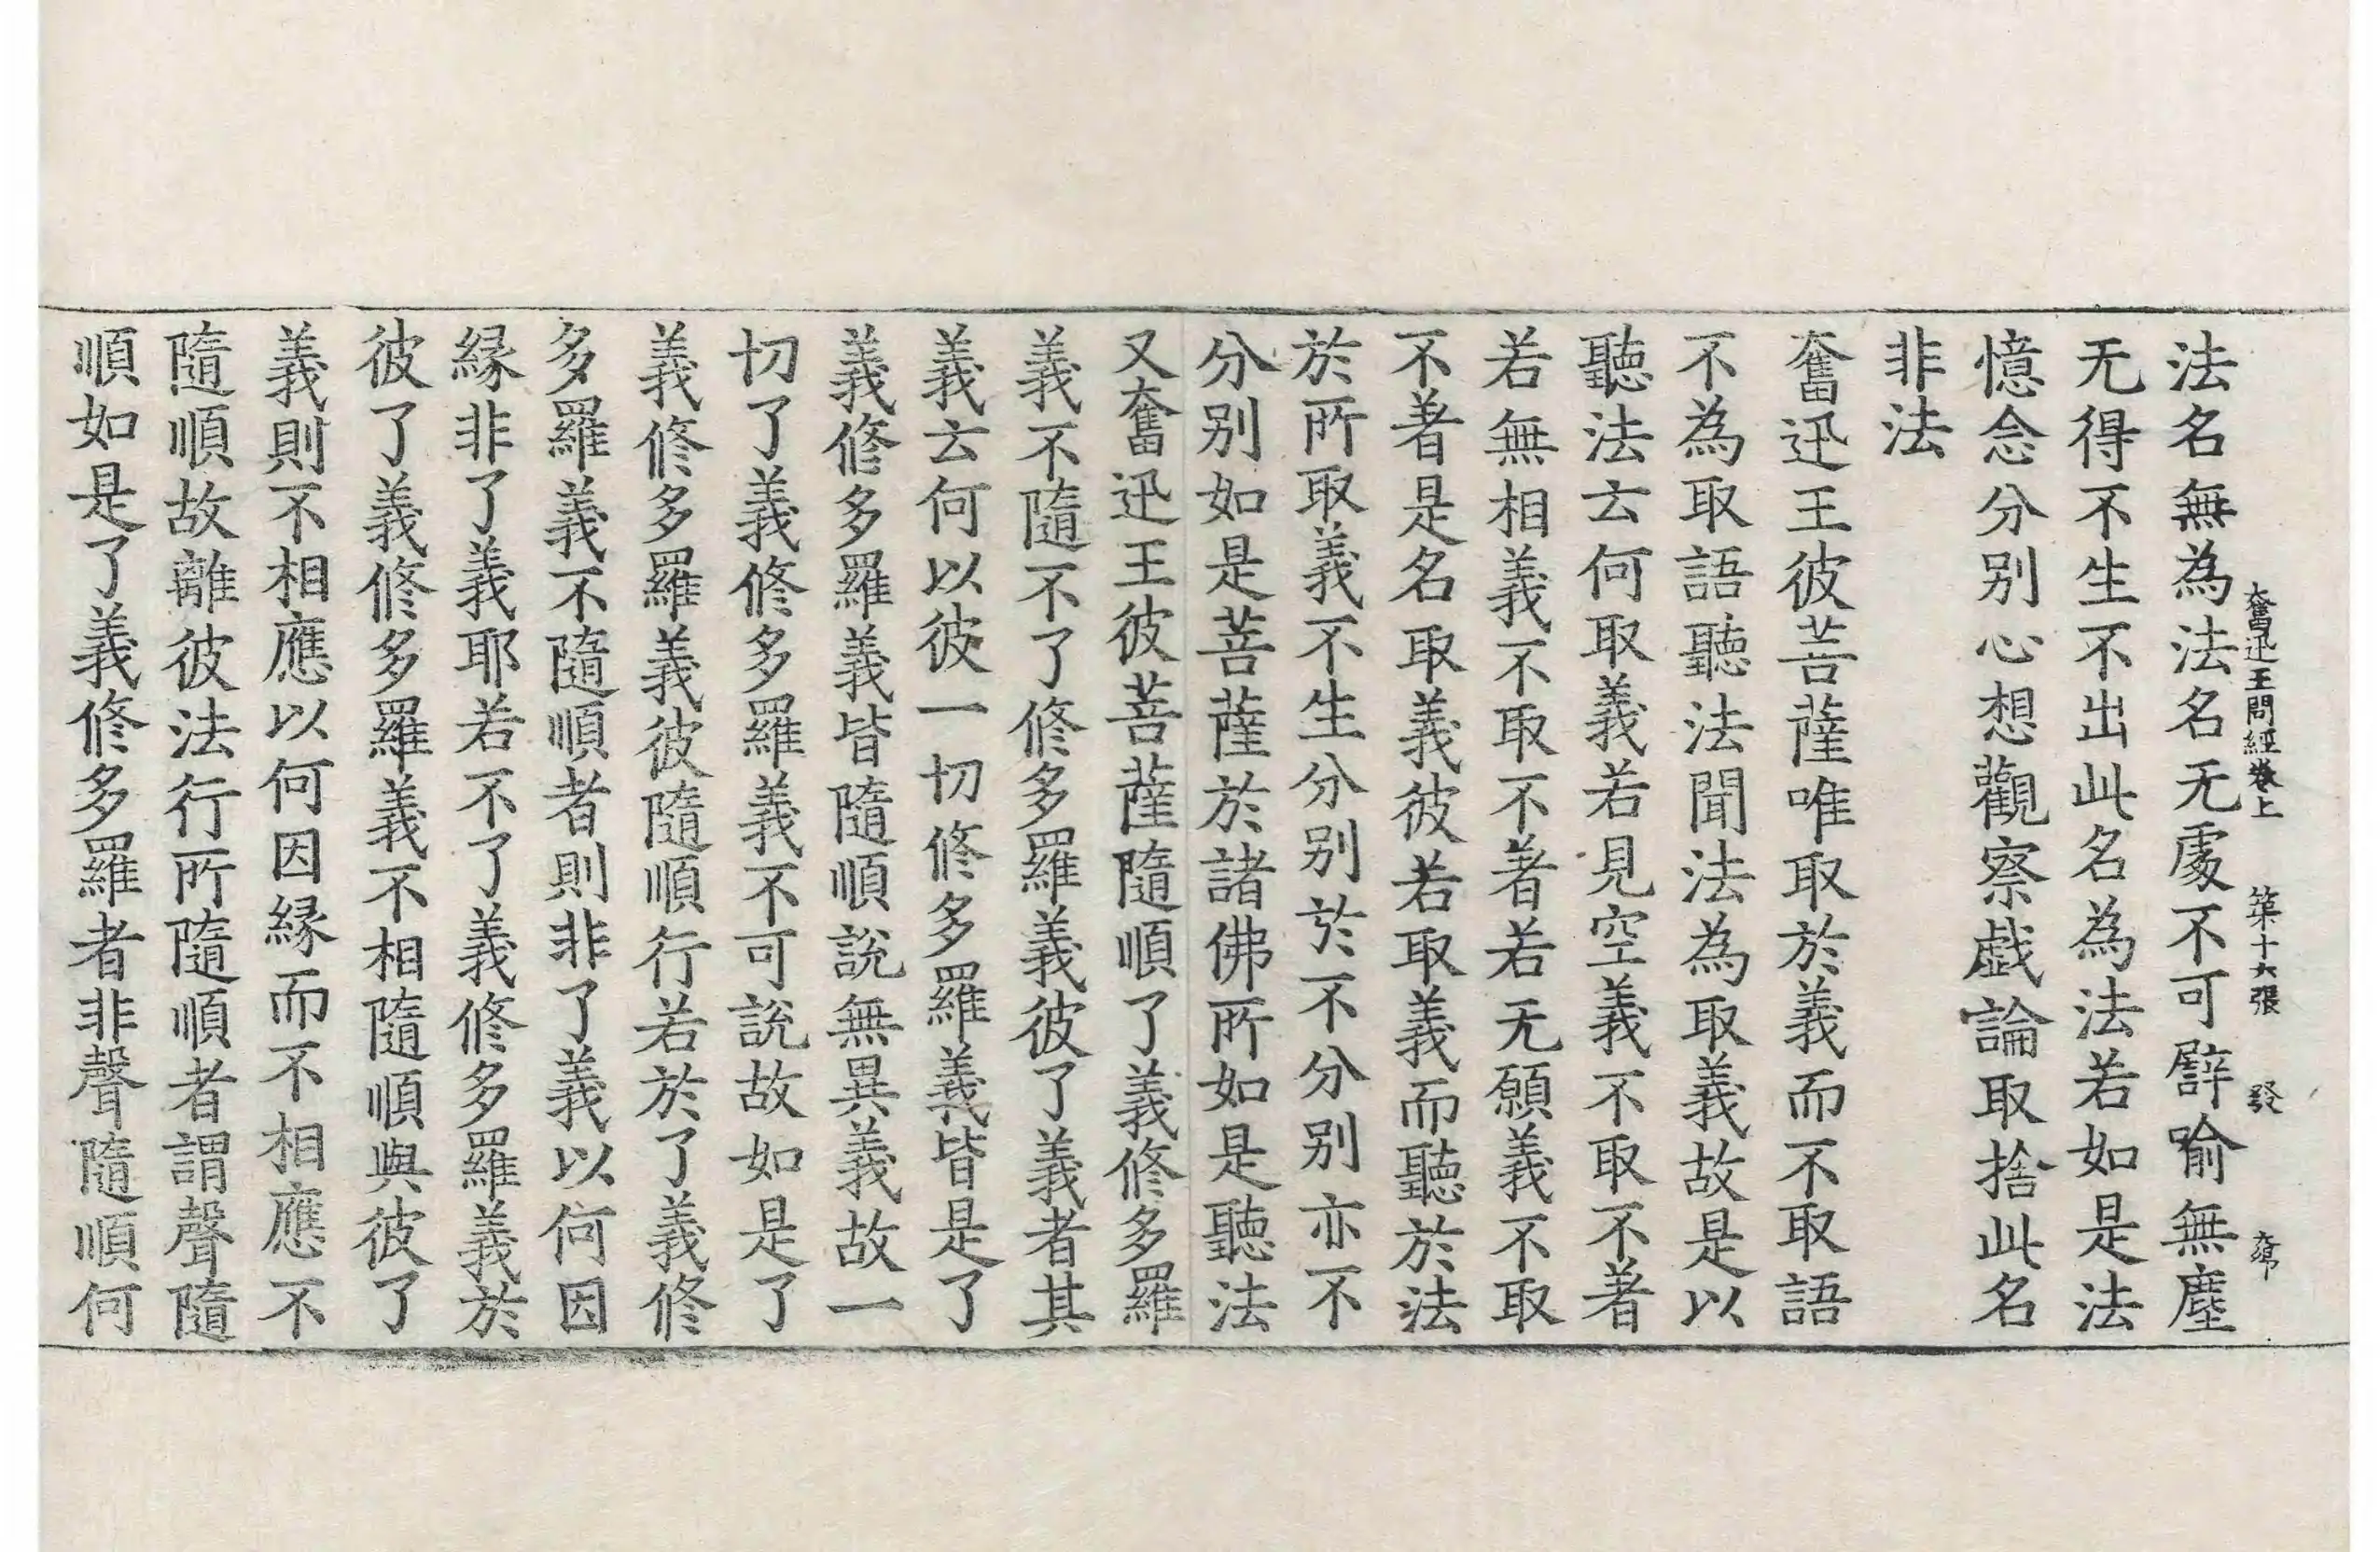 奮迅王問經卷上 第十六張 發
法名無為法名无處不可譬喻無塵
无得不生不出此名為法若如是法
憶念分别心想觀察戲論取捨此名
非法
奮迅王彼菩薩唯取於義而不取語
不為取語聽法聞法為取義故是以
聽法云何取義若見空義不取不著
若無相義不取不著若无願義不取
不著是名取義彼若取義而聽於法
於所取義不生分别於不分别亦不
分别如是菩薩於諸佛所如是聽法
又奮迅王彼菩薩隨順了義修多羅
義不隨不了修多羅義彼了義者其
義云何以彼一切修多羅義皆是了
義修多羅義皆隨順說無異義故一
切了義修多羅義不可說故如是了
義修多羅義彼隨順行若於了義修
多羅義不隨順者則非了義以何因
緣非了義耶若不了義修多羅義於
彼了義修多羅義不相隨順與彼了
義則不相應以何因緣而不相應不
隨順故離彼法行所隨順者謂聲隨
順如是了義修多羅者非聲隨順何